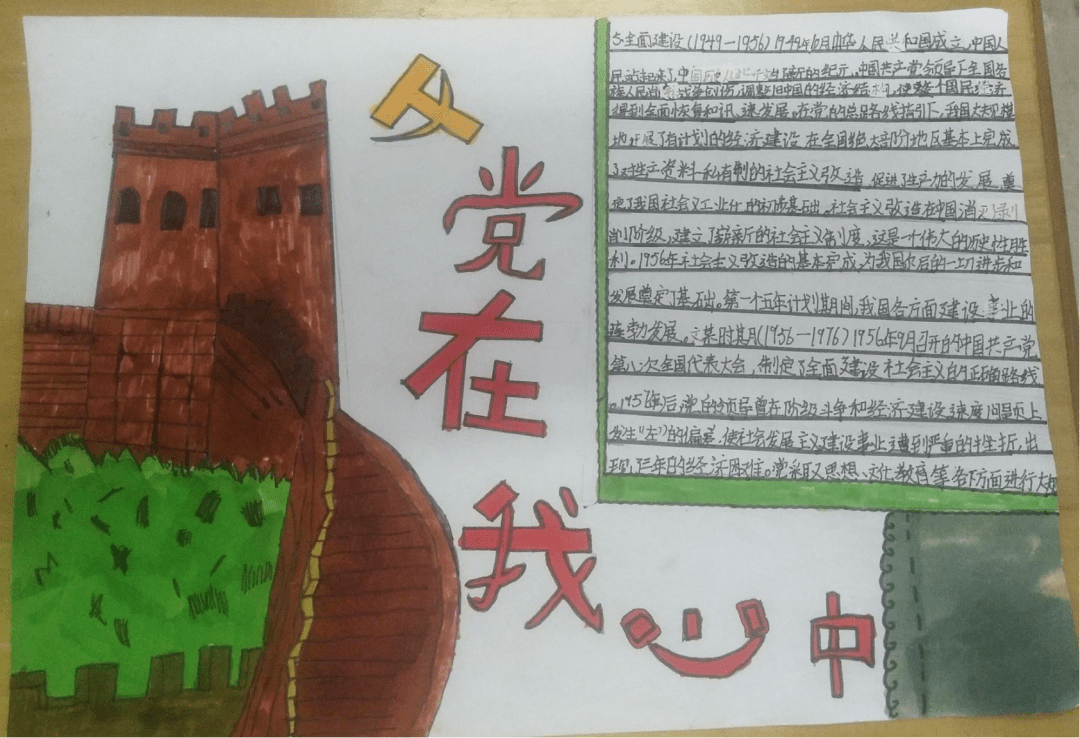 党在我心中
5.全面建设(1949—1956)1949年10月中华人民共和国成立,中国人
民站起来了,中国历史 的新的纪元,中国共产党领导下全国各
族人民 战争创伤,调整旧中国的经济结构,使整个国民经济
得到全面恢复和迅速发展。在党的总路线指引下,我国大规模
地开展了有计划的经济建设在全国绝大部分地区基本上完成
了对生产资料私有制的社会主义改造 促进了生产力的发展,奠
定了我国社会义工业化的初步基础。社会主义改造在中国消灭剥
削阶级,建立了崭新的社会主义制度。这是一个伟大的历史性胜
利。1956年社会主义改造的基本完成,为我国尔后的一切进步和
发展奠定了基础。第一个五年计划期间,我国各方面建设事业的
蓬勃发展。 时期(1956—1976)1956年9月召开的中国共产党
第八次全国代表大会,制定了全面建设社会主义的正确路线
。195 年后,党的领导曾在阶级斗争和经济建设速度问题上
发生"左"的偏差,使社会发展主义建设事业遭到严重的挫折,出
现了三年的经济困难。党采取又思想、文化教育等各个方面进行大